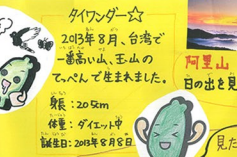 タイワンダー☆
2013年8月、台湾で
一番高い山、玉山の
てっぺんで生まれました。
身長：205cm
体重：ダイエット中
誕生日：2013年8月8日
阿里山
日の出を見
見た